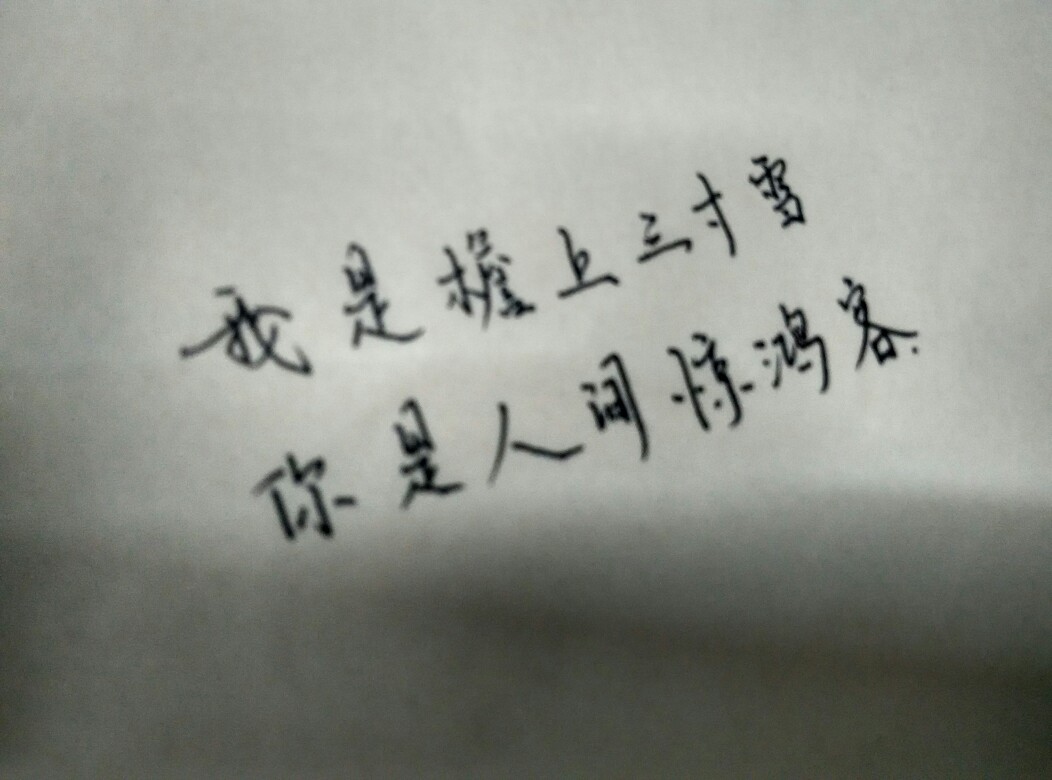 我是檐上三寸雪
你是人间惊鸿客.